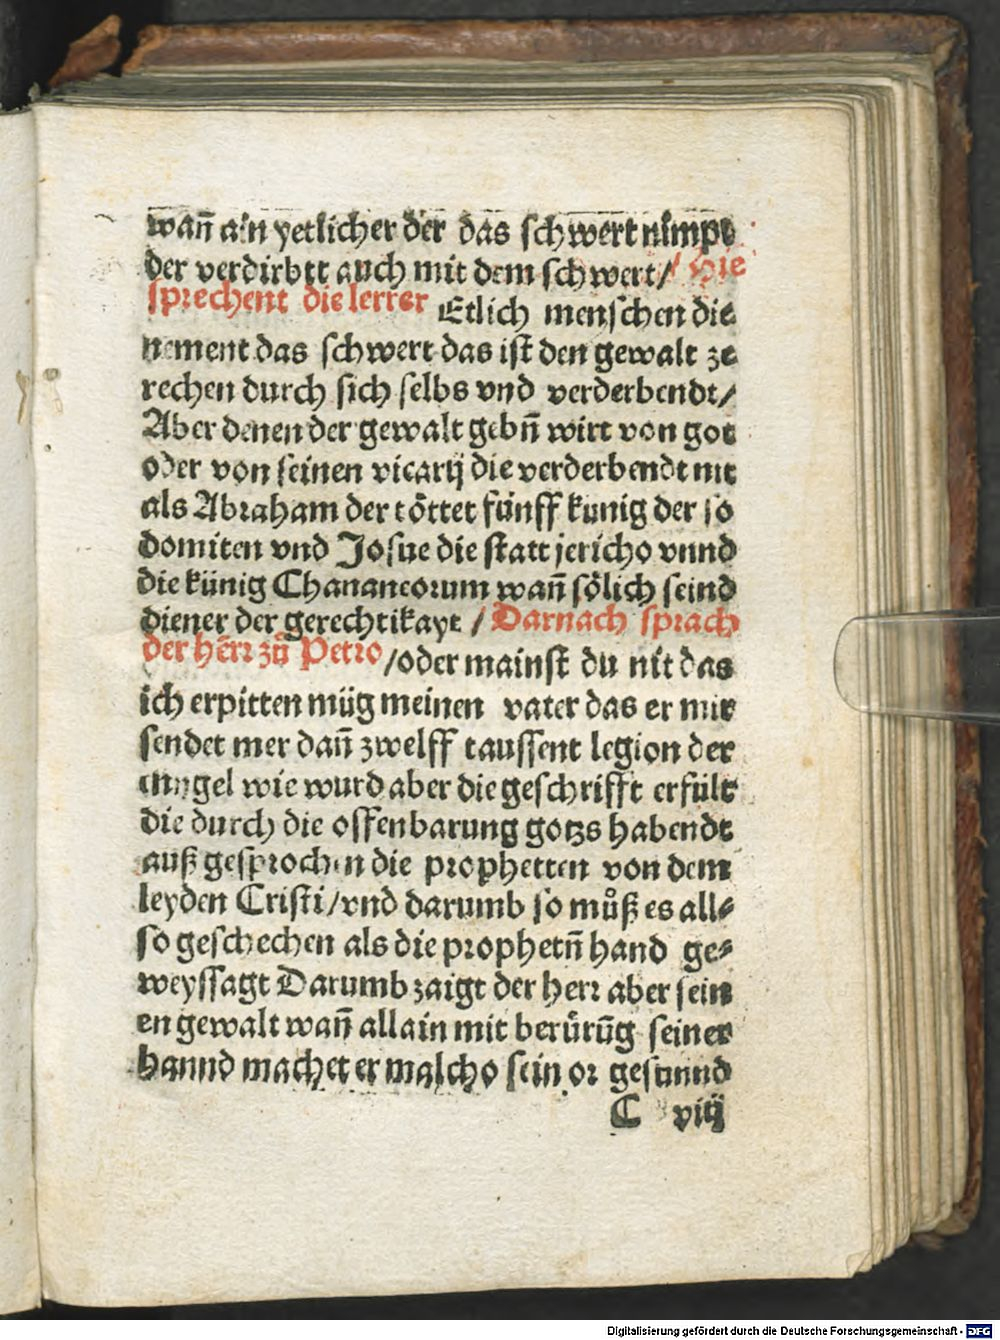 wañ ain yetlicher der das schwert nimpt
der verdirbtt auch mit dem schwert/ Hie
sprechent die lerrer Etlich menschen die
nement das schwert das ist den gewalt ze
rechen durch sich selbs vnd verderbendt/
Aber denen der gewalt gebñ wirt von got
oder von seinen vicarij die verderbendt nit
als Abraham der töttet fünff kunig der so
domiten vnd Josue die statt jericho vnnd
die künig Chananeorum wañ sölich seind
diener der gerechtikayt / Darnach sprach
der hẽrr zů Petro/oder mainst du nit das
ich erpitten müg meinen vater das er mir
sendet mer dañ zwelff taussent legion der
enngel wie wurd aber die geschrifft erfült
die durch die offenbarung gotzs habendt
auß gesprochen die prophetten von dem
leyden Cristi/vnd darumb so můß es all⸗
so geschechen als die prophetñ hand ge⸗
weyssagt Darumb zaigt der herr aber sein
en gewalt wañ allain mit berürũg seiner
hannd machet er malcho sein or gesunnd
C viij
Digitalisierung gefördert durch die Deutsche Forschungsgemeinschaft - DFG